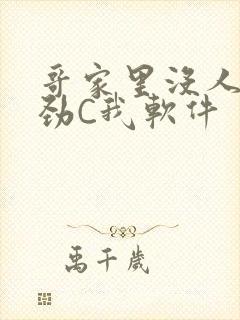 哥家里没人
劲C我软件
禹千岁